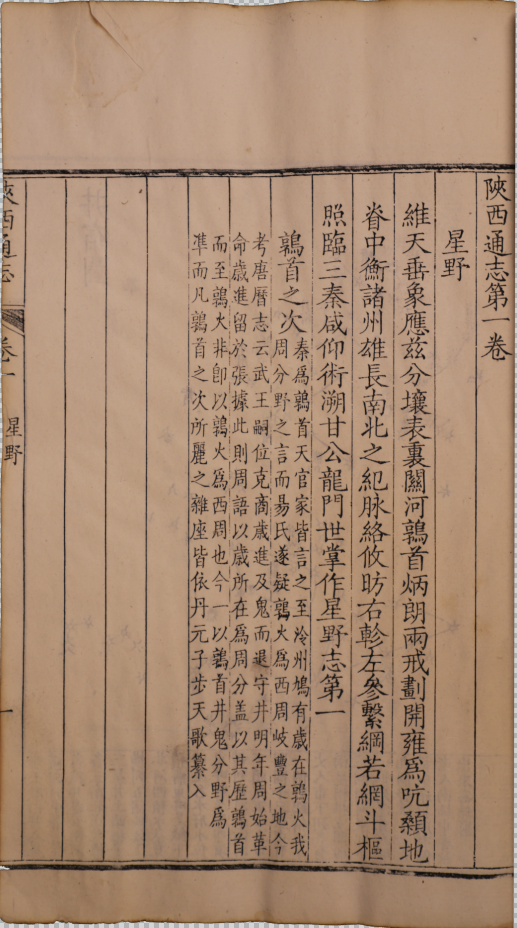 陝西通志第一卷
星野
維天垂象應茲分壤表裏關河鶉首炳朗兩戒劃開雍爲吭顙地
脊中衡諸州雄長南北之紀脉絡攸昉右軫左參繫綱若網斗樞
照臨三秦咸仰術溯甘公龍門世掌作星野志第一
鶉首之次
秦爲鶉首天官家皆言之至泠州鳩有歲在鶉火我
周分野之言而易氏遂疑鶉火爲西周岐豐之地今
考唐曆志云武王嗣位克商歲進及鬼而退守井明年周始革
命歲進留於張據此則周語以歲所在爲周分蓋以其歷鶉首
而至鶉火非卽以鶉火爲西周也今一以鶉首井鬼分野爲
準而凡鶉首之次所麗之雜座皆依丹元子步天歌纂入
陝西通志
卷一
星野
一